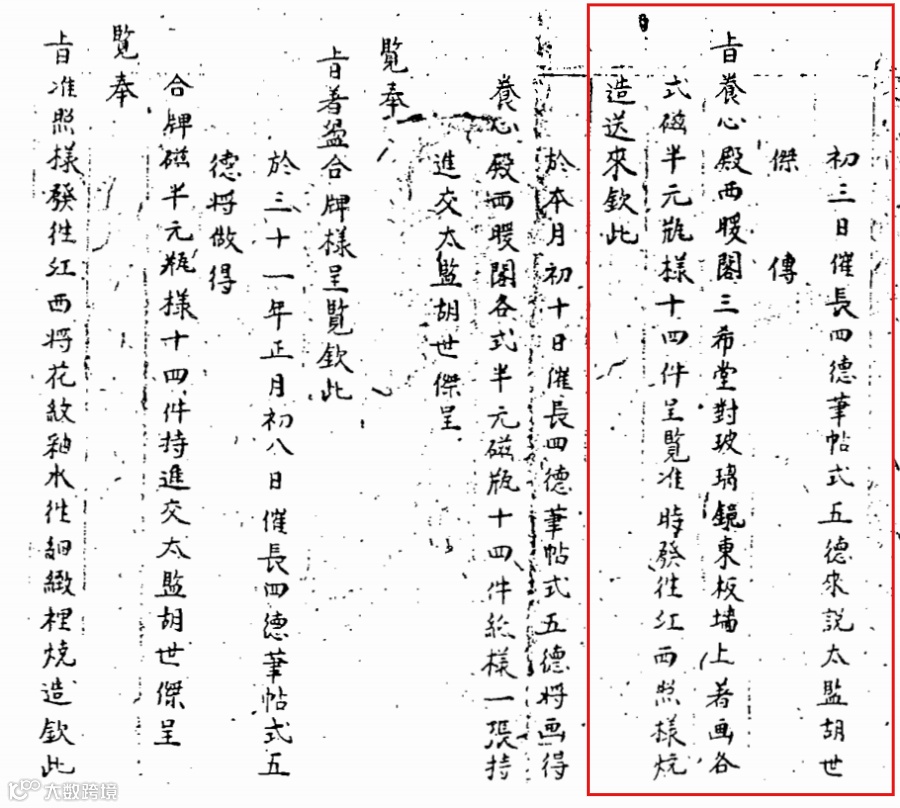 初三日催長四德筆帖式五德來說太監胡世
傑 傳
旨養心殿西暖閣三希堂對玻璃鏡東板墻上著画各
式磁半元瓶樣十四件呈覽准時發徃江西照樣燒
造送來欽此
於本月初十日催長四德筆帖式五德將画得
養心殿西暖閣各式半元磁瓶十四件紙樣一張持
進交太監胡世傑呈
覽奉
旨著盪合牌樣呈覽欽此
於三十一年正月初八日催長四德筆帖式五
德將做得
合牌磁半元瓶樣十四件持進交太監胡世傑呈
覽奉
旨准照樣發徃江西將花紋釉水徃細緻裡燒造欽此
大数跨境